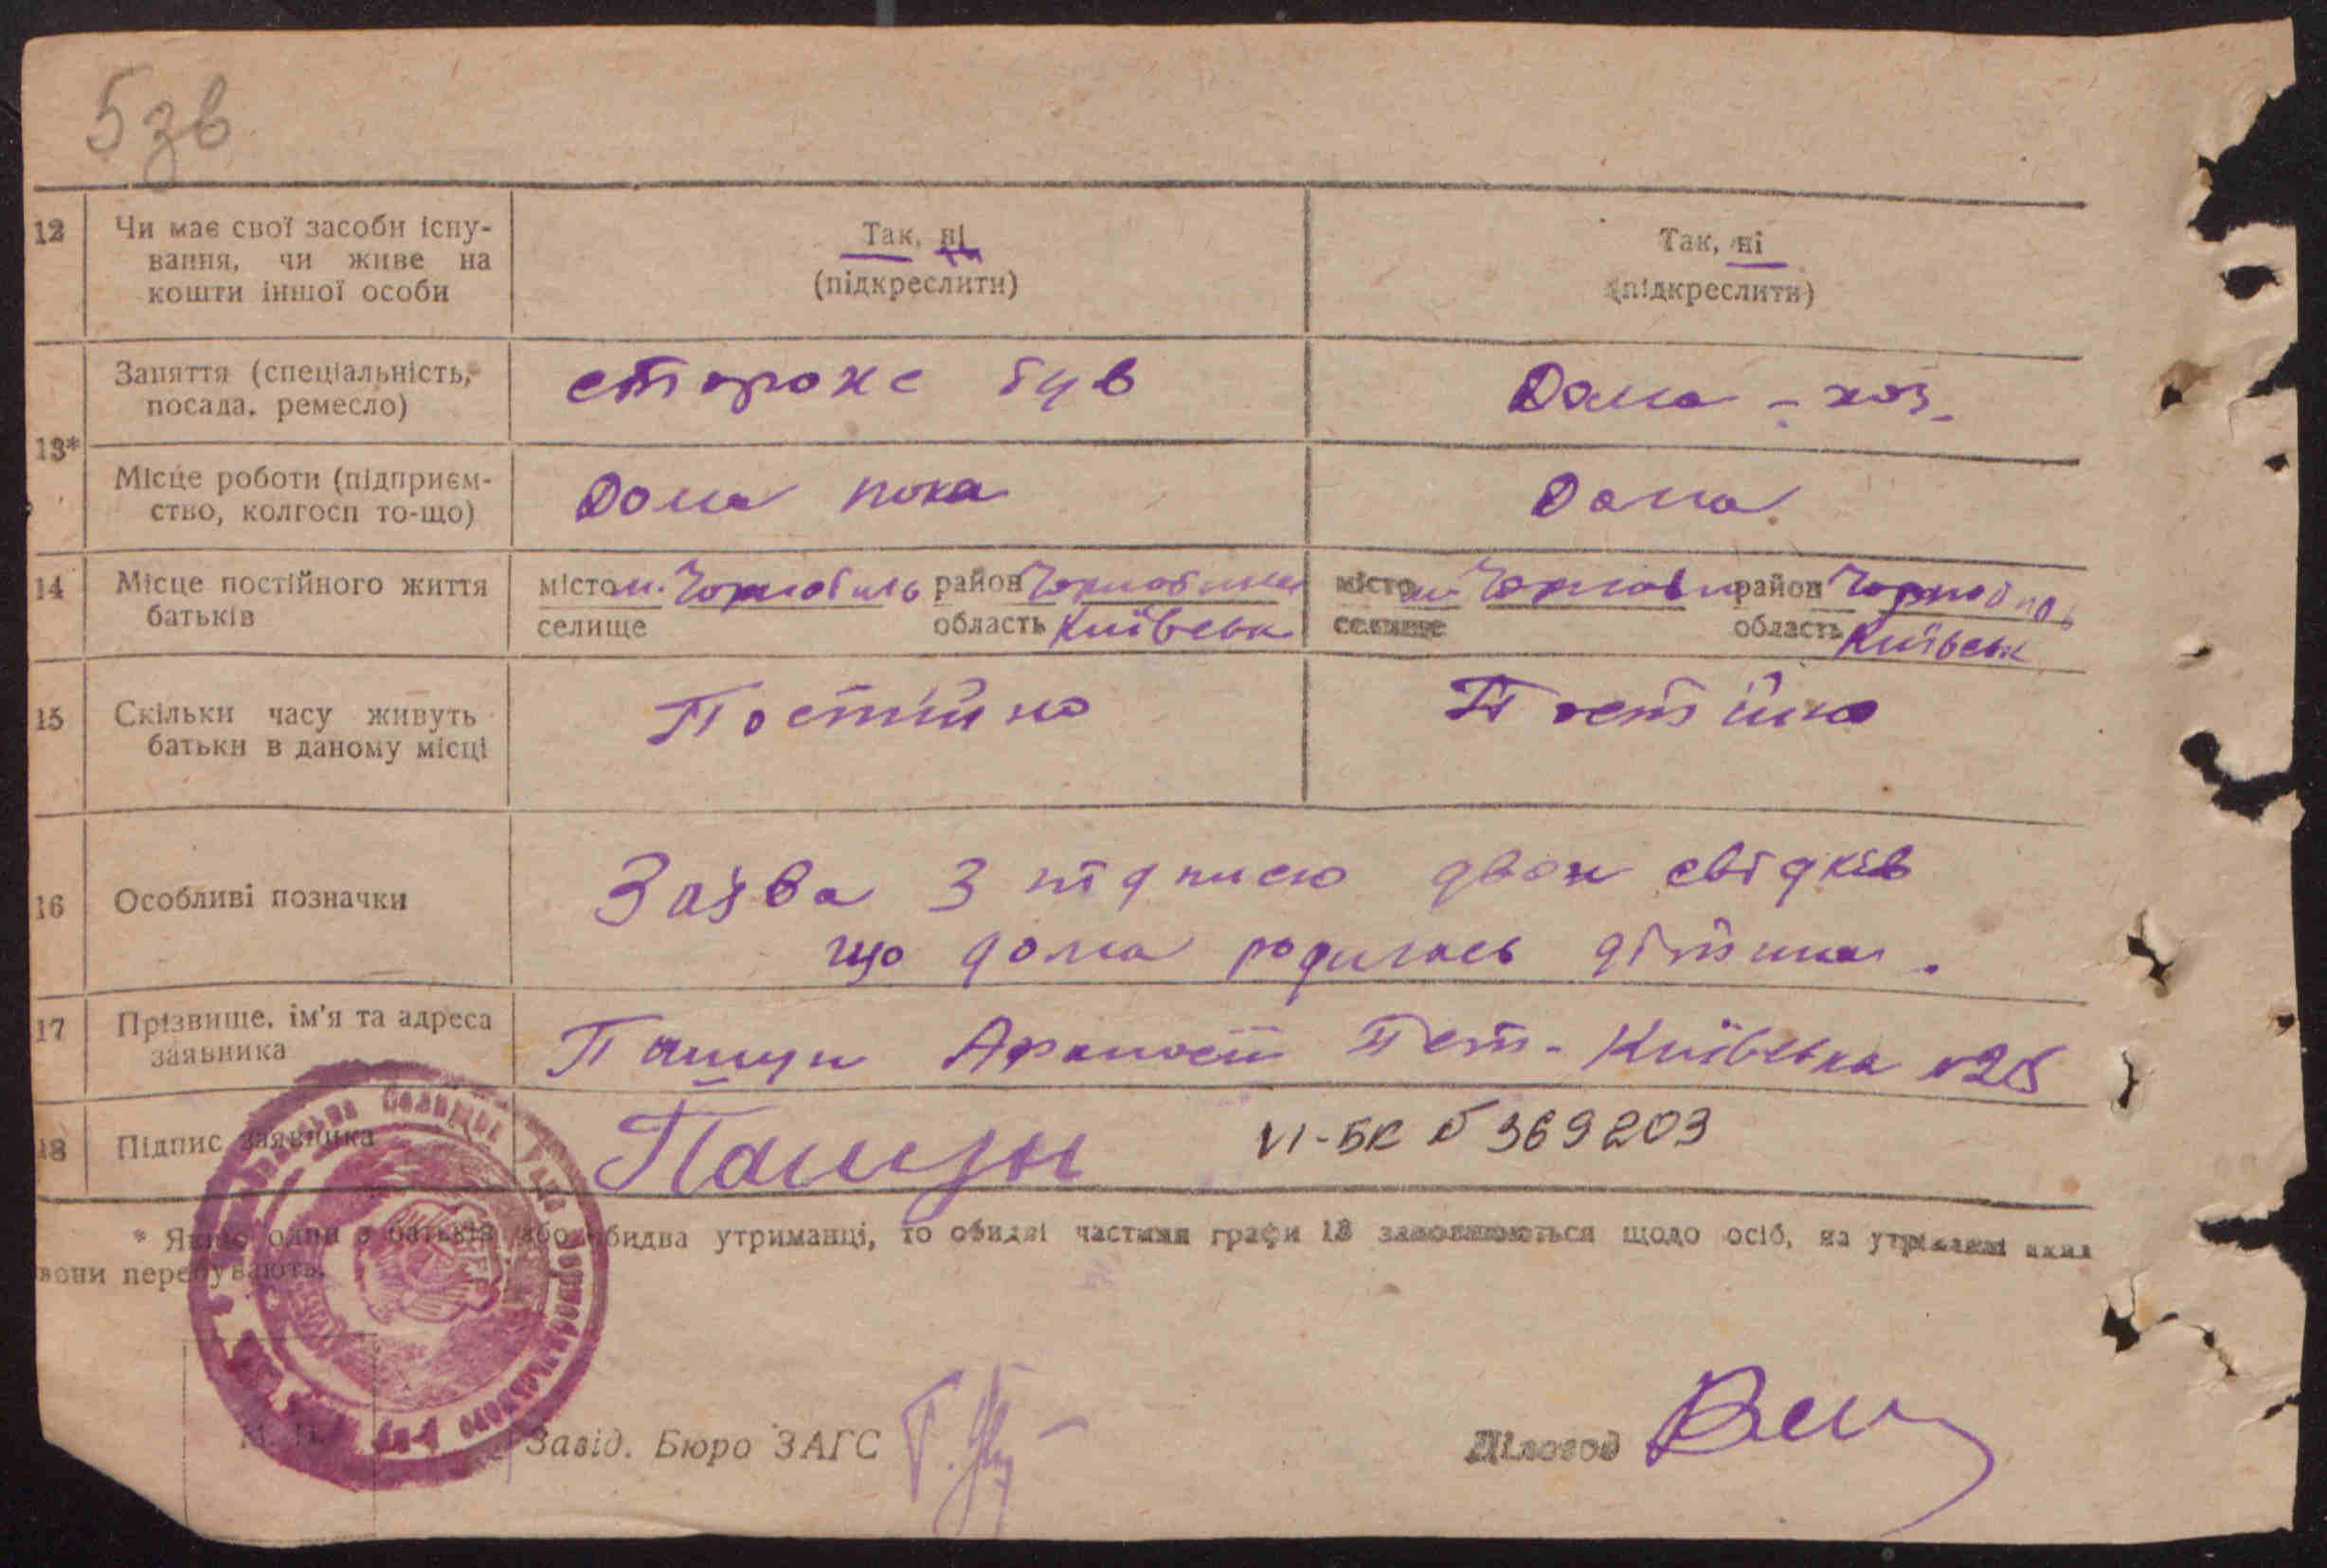 5зв
12 Чи має свої засоби існу-
вання, чи живе на
кошти іншої особи
Так, ні
(підкреслити)
Так, ні
(підкреслити)
13*
Заняття (спеціальність,
посада, ремесло)
сторож був
Дома - хоз.
Місце роботи (підприєм-
ство, колгосп то-що)
Дома пока
Дома
14 Місце постійного життя
батьків
місто м. Чорнобиль район
селище область Київськ
місто м. район
селище область Київськ
15 Скільки часу живуть
батьки в даному місці
Постійно
Постійно
16 Особливі позначки
Заява з підписю двох свідків
що дома родилась дітина.
17 Прізвище, ім'я та адреса
заявника
Київська №28
18 Підпис заявника
VI-БК № 369203
* Якщо один з батьків або обидва утриманці, то обидві частини графи 13 заповнюються щодо осіб, на утриманні яких
вони перебувають.
М. П.
Завід. Бюро ЗАГС
Діловод